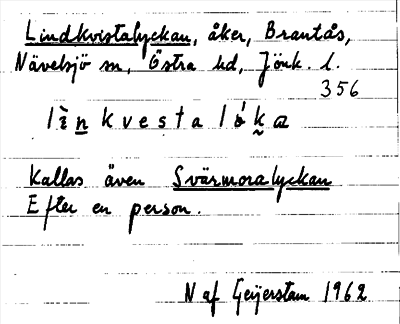 Lindkvistalyckan, åker, Brantås,
Nävelsjö sn, Östra hd, Jönk. l.
356
lìnkvestalóka
Kallas även Svärmoralyckan
Efter en person.
N af Geijerstam 1962